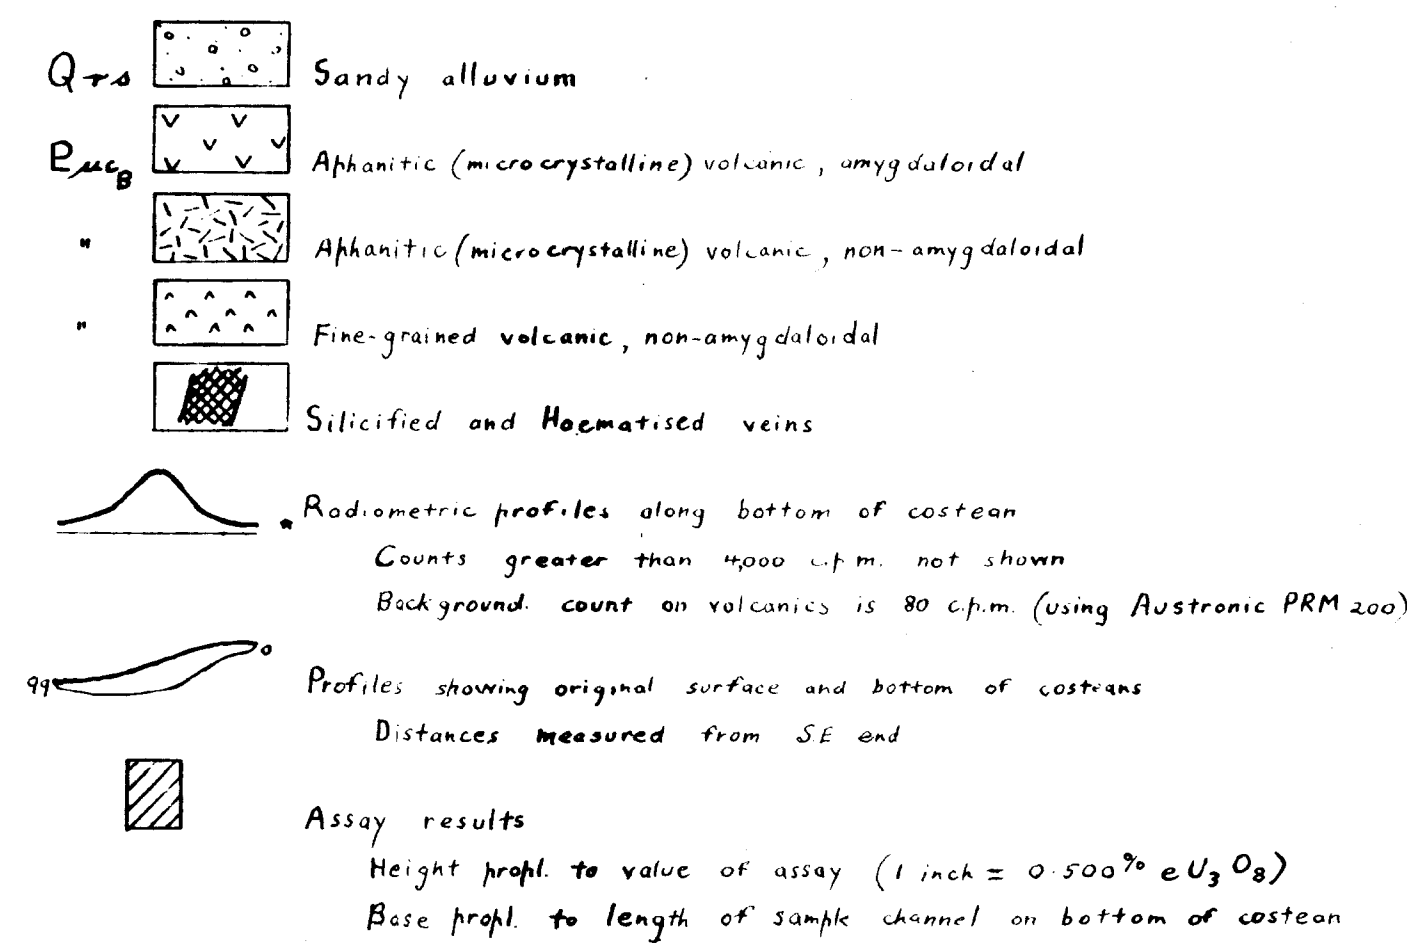 Qrs Sandy alluvium
Puc_B Aphanitic (microcrystalline) volcanic, amygduloidal
" Aphanitic (microcrystalline) volcanic, non-amygdaloidal
" Fine-grained volcanic, non-amygdaloidal
Silicified and Haematised veins
* Radiometric profiles along bottom of costean
Counts greater than 4,000 c.p.m. not shown
Background count on volcanics is 80 c.p.m. (using Austronic PRM 200)
99 0 Profiles showing original surface and bottom of costeans
Distances measured from S.E end
Assay results
Height propl. to value of assay (1 inch = 0.500% eU3O8)
Base propl. to length of sample channel on bottom of costean